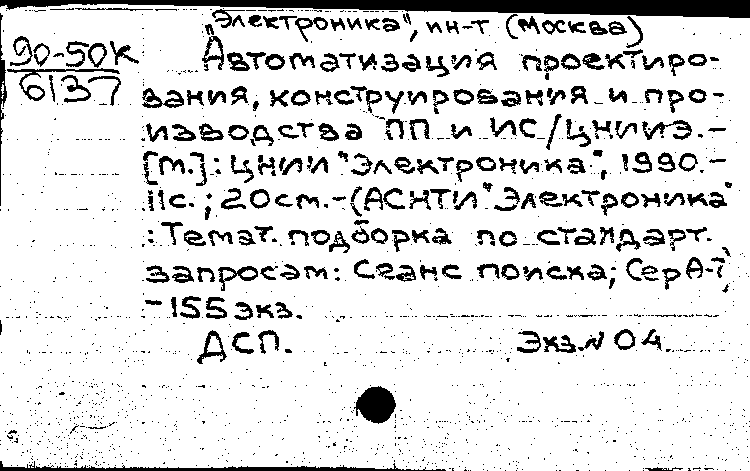 "Электроника", ин-т (Москва)
90-50к
6137
Автоматизация проектиро-
вания, конструирования и про-
изводства ПП и ИС/ЦНИИЭ.-
[М.]: ЦНИИ "Электроника", 1990.-
11с.; 20см.-(АСНТИ "Электроника"
: Темат. подборка по стандарт.
запросам: Сеанс поиска; Сер А-7,
-155 экз.
ДСП. Экз.№ 04.